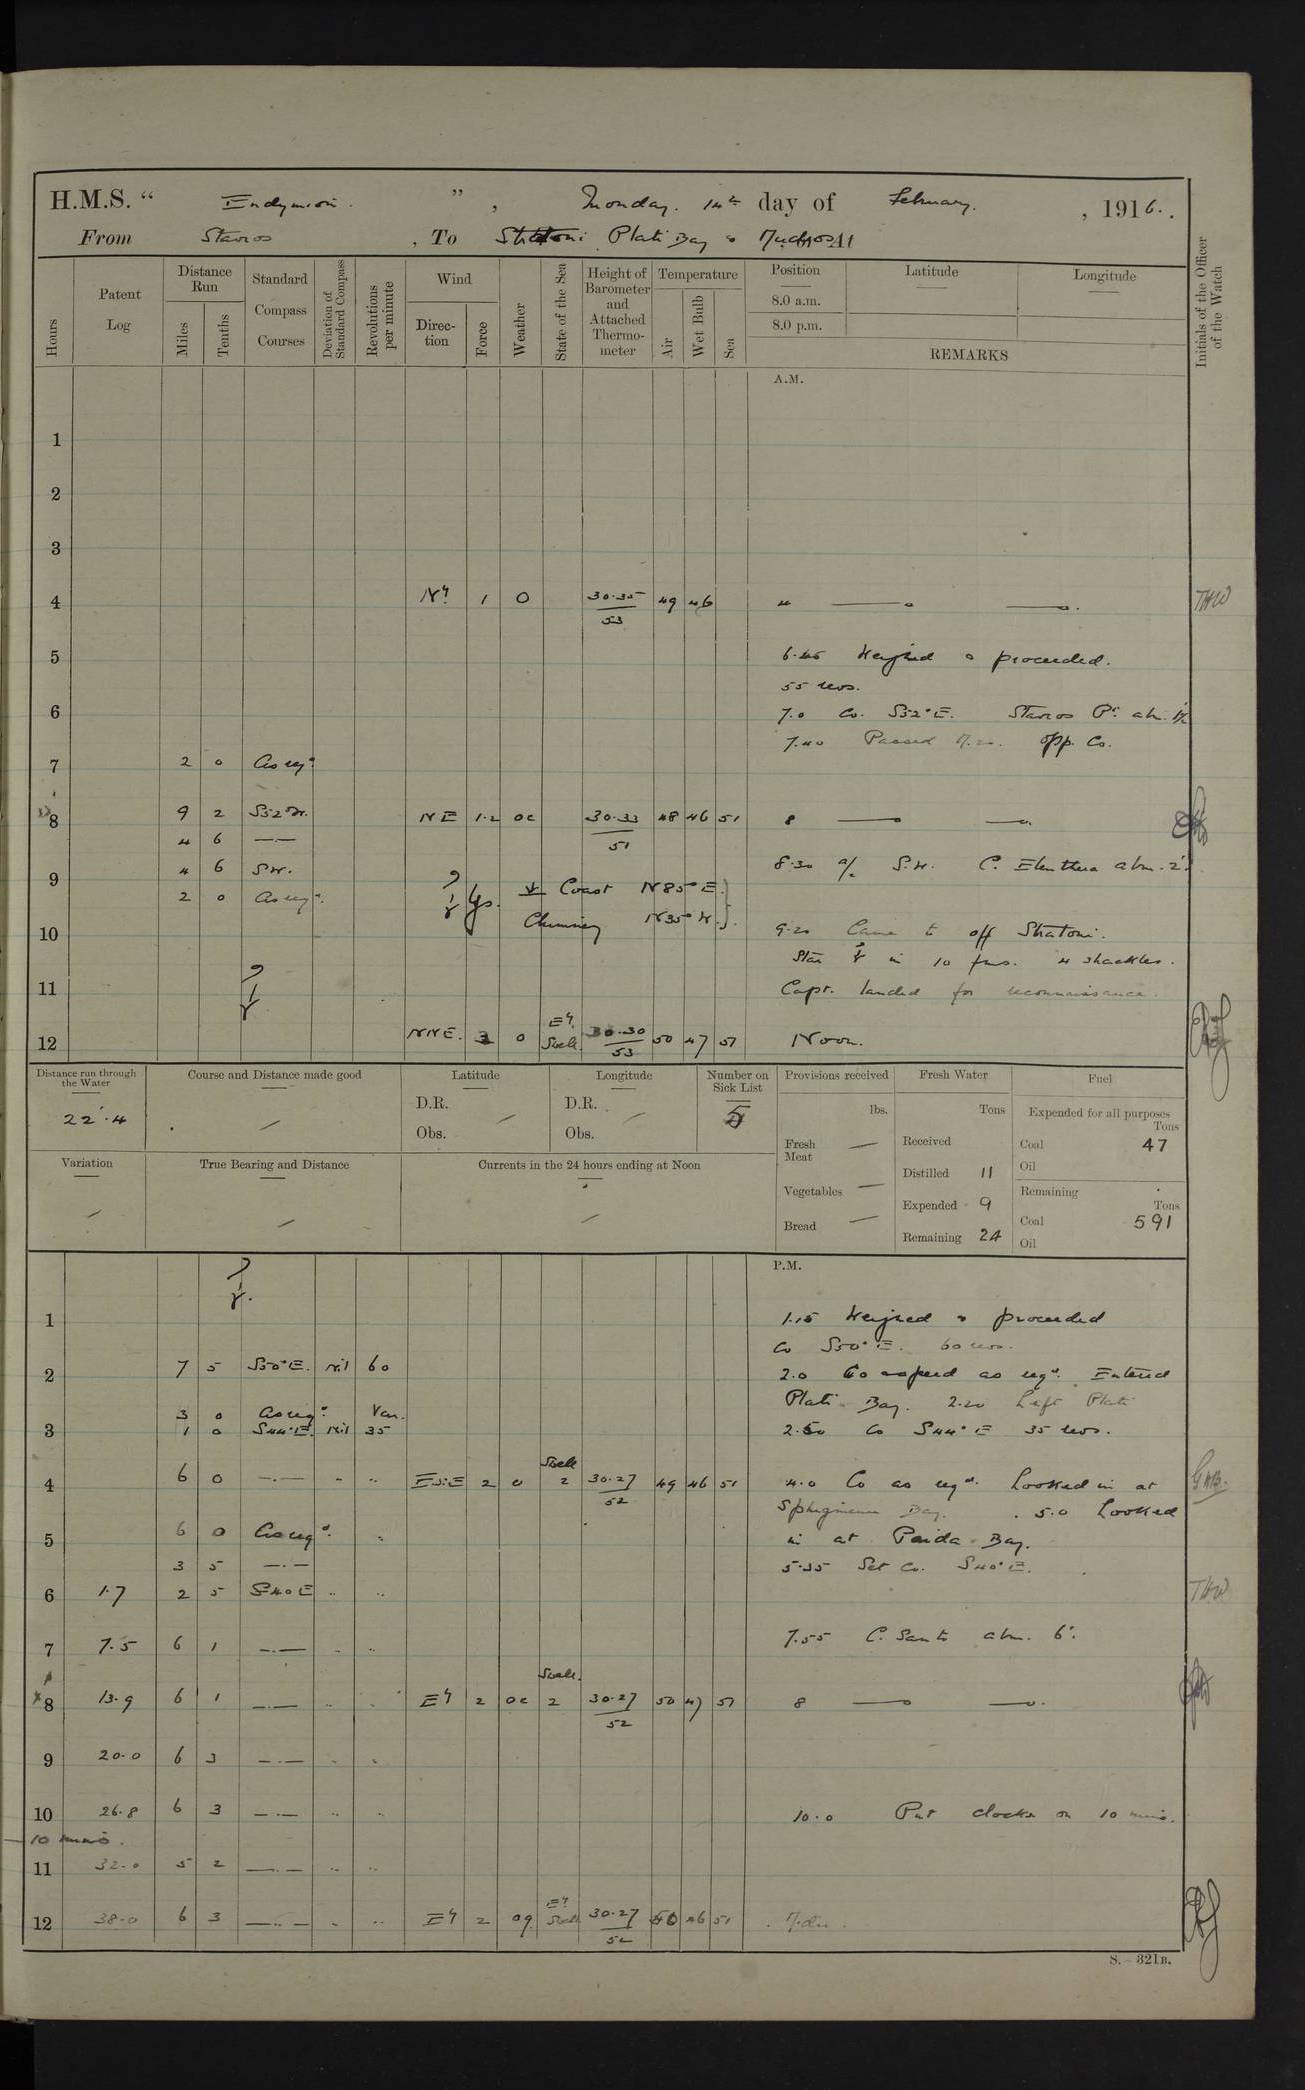 H.M.S. “ Endymion. ”, Monday. 14th day of February. , 1916.
From Stavros , To Stratoni Plati Bay & Mudros
Hours
Patent Log
Distance Run
Miles
Tenths
Standard Compass Courses
Deviation of Standard Compass
Revolutions per minute
Wind
Direction
Force
Weather
State of the Sea
Height of Barometer and Attached Thermometer
Temperature
Air
Wet Bulb
Sea
Position
8.0 a.m.
8.0 p.m.
Latitude
Longitude
REMARKS
Initials of the Officer of the Watch
A.M.
1
2
3
4 Nly 1 O 30.35 53 49 46 4 THW
5 6.45 Weighed & proceeded.
55 revs.
6 7.0 Co. S52°E. Stavros Pt. abm.
7.40 Passed opp. Co.
7 2 0 As reqd.
8 9 2 NE 1.2 oc 30.33 51 48 46 51 8
4 6 —·—
8.30 a/c S.W. C. Eleuthera abm. 2'.
9 4 6 SW.
2 0 As reqd. Coast N85°E.
Chimney N35°W.
10 9.20 Came to off Stratoni.
in 10 fms. 4 shackles.
11 Capt. landed for reconnaissance.
12 NNE. 3 O Ely. Swell 30.30 53 50 47 51 Noon.
Distance run through the Water
22'.4
Course and Distance made good
Latitude
D.R.
Obs.
Longitude
D.R.
Obs.
Number on Sick List
5
Variation
True Bearing and Distance
Currents in the 24 hours ending at Noon
Provisions received
lbs.
Fresh Meat
Vegetables
Bread
Fresh Water
Tons
Received
Distilled 11
Expended 9
Remaining 24
Fuel
Expended for all purposes
Tons
Coal 47
Oil
Remaining
Tons
Coal 591
Oil
P.M.
1 1.15 Weighed & proceeded
Co S50°E. 60 revs.
2 7 5 S50°E. Nil 60 2.0 Co & speed as reqd. Entered
Plati Bay. 2.20 Left Plati
3 0 As reqd. Var.
3 1 0 S44°E. Nil 35 2.50 Co S44°E 35 revs.
4 6 0 —·— ESE 2 O Swell 2 30.27 52 49 46 51 4.0 Co as reqd. Looked in at
Bay. 5.0 Looked
5 6 0 As reqd. in at Bay.
3 5 —·— 5.35 Set Co. S40°E.
6 1.7 2 5 S40E THW
7 7.5 6 1 —·— 7.55 C. Santo abm. 6'.
8 13.9 6 1 —·— Ely 2 oc Swell. 2 30.27 52 50 47 51 8
9 20.0 6 3 —·—
10 26.8 6 3 —·— 10.0 Put clocks on 10 mins.
—10 mins.
11 32.0 5 2 —·—
12 38.0 6 3 —·— Ely 2 Ely Swell 30.27 52 46 51
S.—321B.